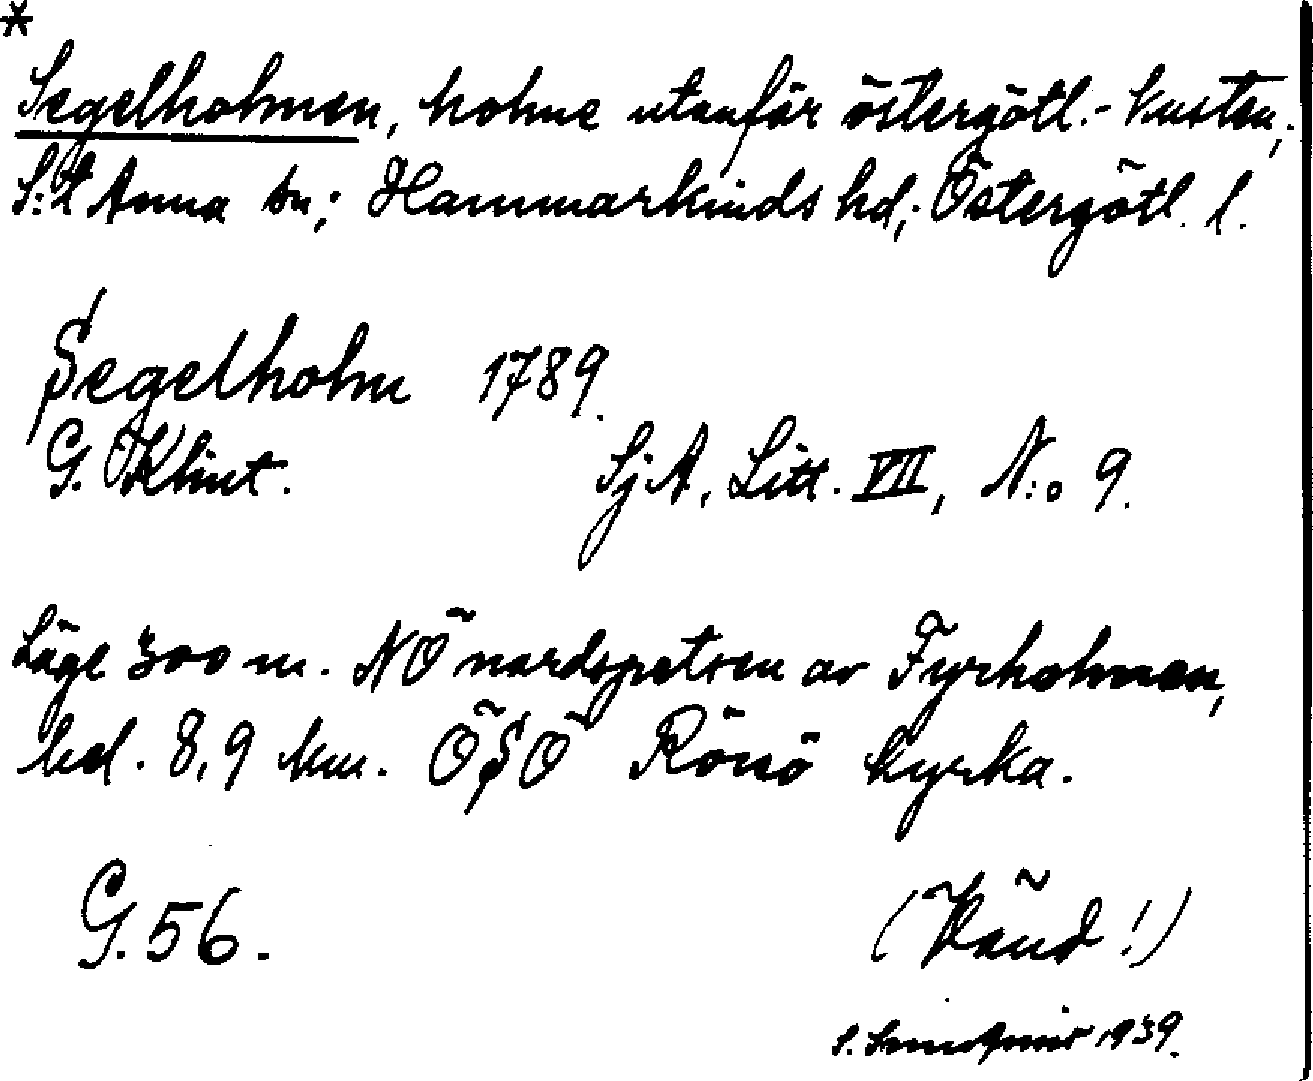 *
Segelholmen, holme utanför östergötl.-kusten;
S:t Anna sn; Hammarkinds hd; Östergötl. l.
Segelholm 1789.
G. Klint. SjA, Litt. VII, N:o 9.
Läge 300 m. NÖ nordspetsen av Fyrholmen,
bel. 8,9 km. ÖSÖ Rönö kyrka.
G. 56.
(Vänd!)
S. 1939.